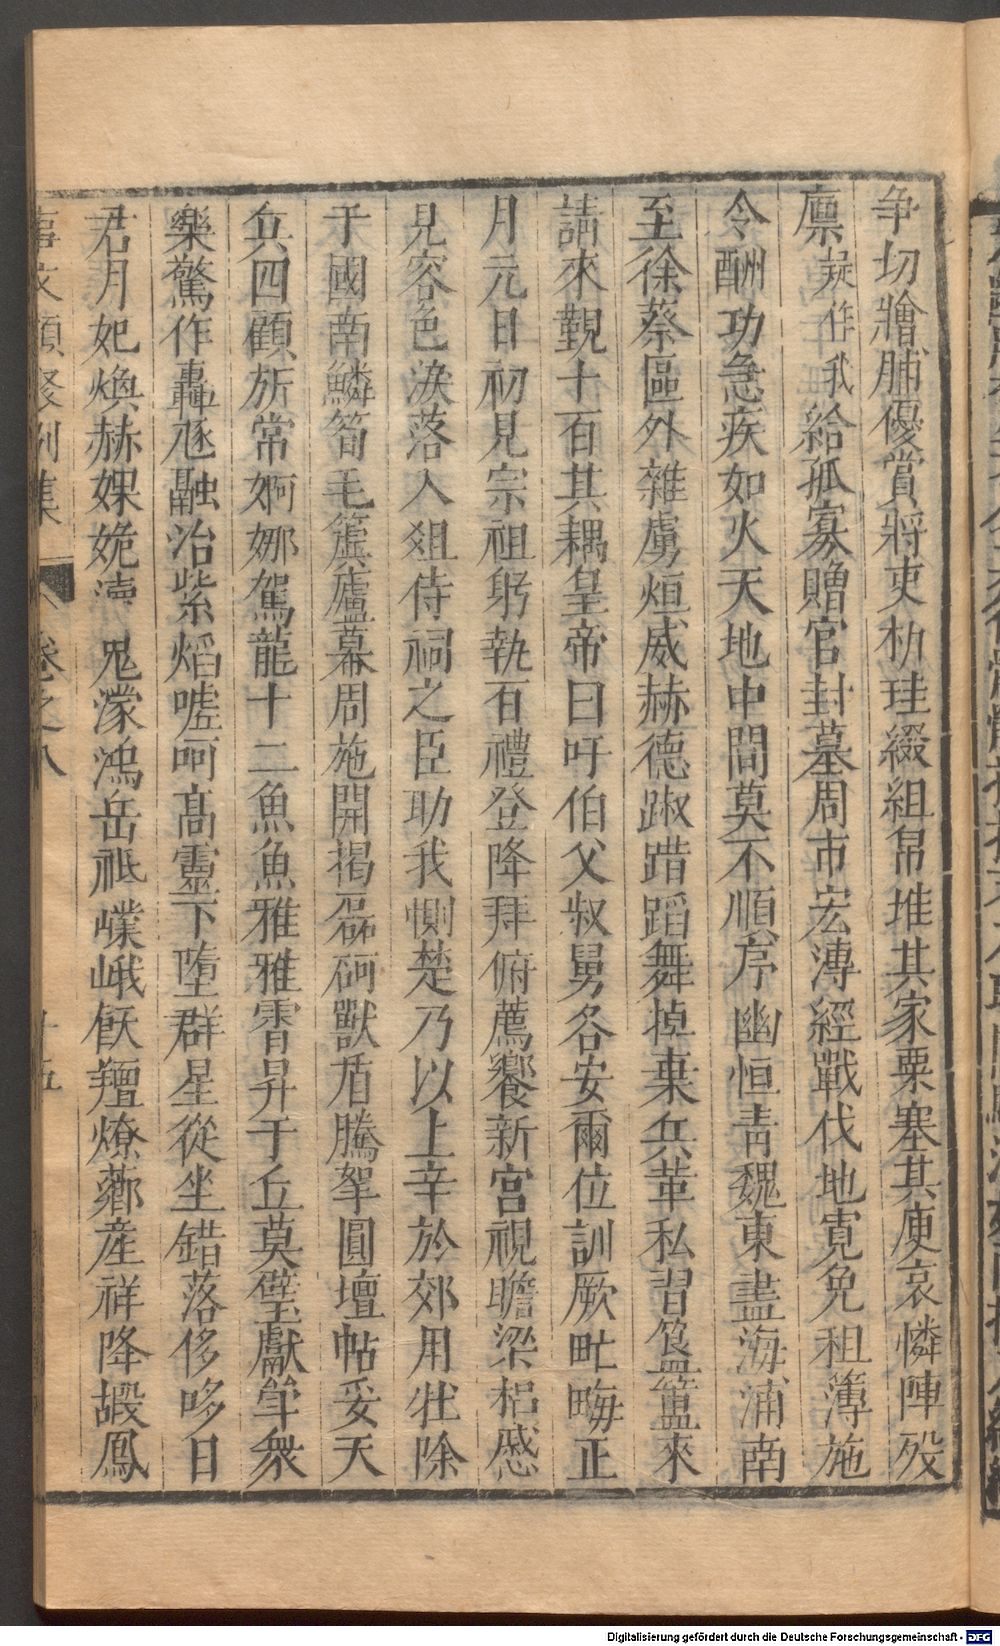 争切鱠脯優賞將吏扐珪綴組帛堆其家粟塞其庾哀憐陣殁
廪𡜦作我給孤寡贈官封墓周帀宏溥經戰伐地寛免租簿施
令酬功急疾如火天地中間莫不順序幽恒青魏東盡海浦南
至徐蔡區外雜虜烜威赫德踧踖蹈舞掉棄兵革私習簋簠來
請來覲十百其耦皇帝曰吁伯父叔舅各安爾位訓厥甿畮正
月元日初見宗祖躬執百禮登降拜俯薦饗新宮視瞻梁梠慼
見容色淚落入俎侍祠之臣助我惻楚乃以上辛於郊用牡除
于國南鱗筍毛簴廬幕周施開揭磊砢獸盾騰拏圓壇帖妥天
兵四顧旂常婀娜駕龍十二魚魚雅雅霄昇于丘奠璧獻斝衆
樂驚作轟豗融冶紫焰噓呵高靈下墮群星從坐錯落侈哆日
君月妃煥赫婐婉瀆鬼濛鴻岳祗嶫峨飫羶燎薌産祥降嘏鳳
事文類聚别集 卷之八 十五
Digitalisierung gefördert durch die Deutsche Forschungsgemeinschaft - DFG